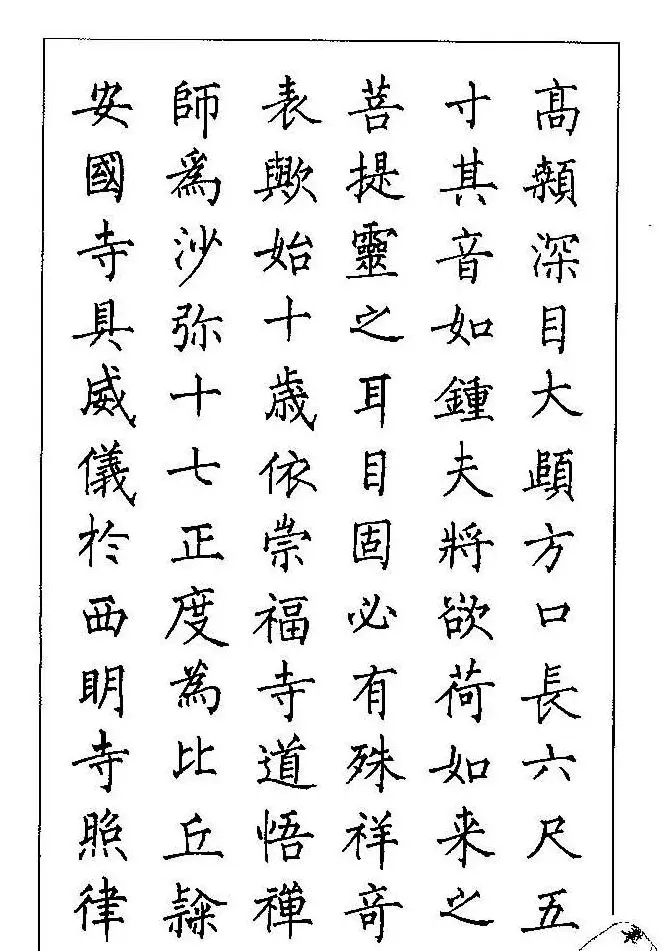 高顙深目大頤方口長六尺五
寸其音如鍾夫將欲荷如来之
菩提靈之耳目固必有殊祥奇
表歟始十歳依崇福寺道悟禪
師爲沙弥十七正度為比丘隸
安國寺具威儀於西明寺照律